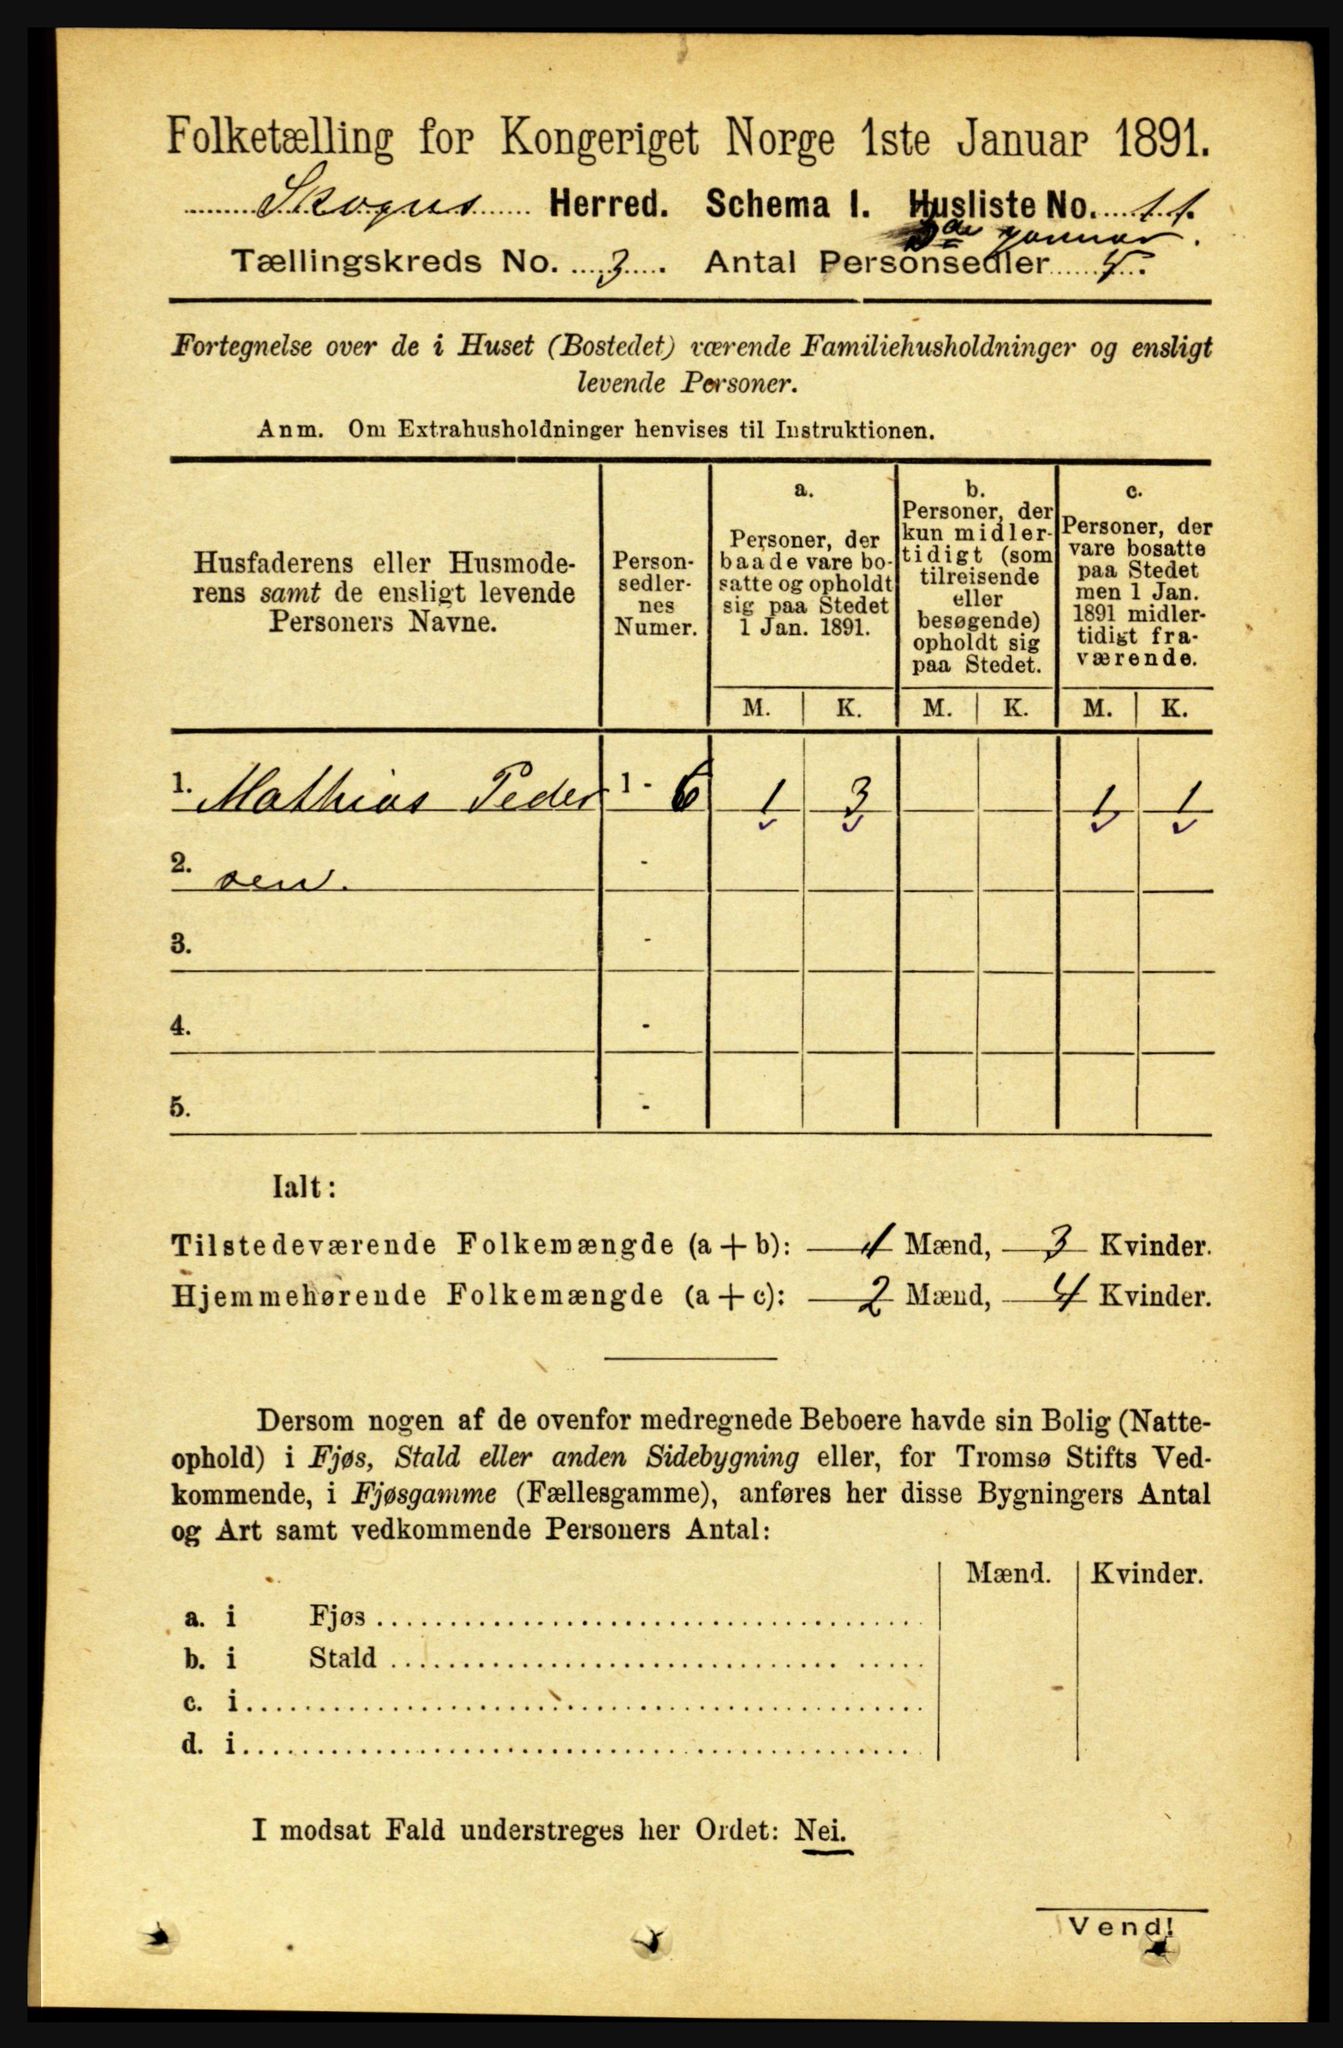 Folketælling for Kongeriget Norge 1ste Januar 1891.
Skogns Herred. Schema I. Husliste No. 11.
2den Januar.
Tællingskreds No. 3. Antal Personsedler
Fortegnelse over de i Huset (Bostedet) værende Familiehusholdninger og ensligt
levende Personer.
Anm. Om Extrahusholdninger henvises til Instruktionen.
Husfaderens eller Husmode-
rens samt de ensligt levende
Personers Navne.
Person-
sedler-
nes
Numer.
a.
Personer, der
baade vare bo-
satte og opholdt
sig paa Stedet
1 Jan. 1891.
b.
Personer, der
kun midler-
tidigt (som
tilreisende
eller
besøgende)
opholdt sig
paa Stedet.
c.
Personer, der
vare bosatte
paa Stedet
men 1 Jan.
1891 midler-
tidigt fra-
værende.
M. K. M. K. M. K.
1. Mathias Peder 1 - 6 1 3 1 1
2. sen. -
3. -
4. -
5. -
Ialt:
Tilstedeværende Folkemængde (a + b): 1 Mænd, 3 Kvinder.
Hjemmehørende Folkemængde (a + c): 2 Mænd, 4 Kvinder.
Dersom nogen af de ovenfor medregnede Beboere havde sin Bolig (Natte-
ophold) i Fjøs, Stald eller anden Sidebygning eller, for Tromsø Stifts Ved-
kommende, i Fjøsgamme (Fællesgamme), anføres her disse Bygningers Antal
og Art samt vedkommende Personers Antal:
Mænd. Kvinder.
a. i Fjøs
b. i Stald
c. i
d. i
I modsat Fald understreges her Ordet: Nei.
Vend!